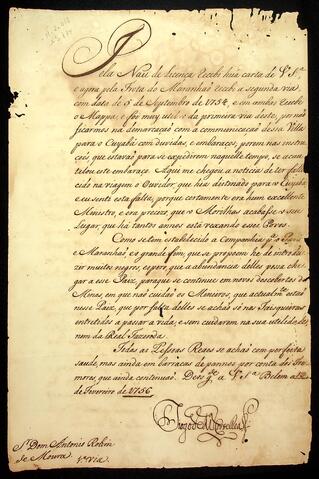 Pela Nau de Licença recebi huã carta de V. S.ª
e agora pela Frota do Maranhaõ recebi a segunda via
com data de 5 de Septembro de 1754, e em ambas recebi
o Mappa, e foi muy util o da primeira via deste, por naõ
ficarmos na demarcaçaõ com a communicaçaõ dessa Villa
para o Cuyabá com duvidas, e embaraços, porem nas instruc
çoes, que estavaõ para se expedirem naquelle tempo, se acau
telou este embaraço. Aqui me chegou a noticia de ter falle
cido na viagem o Ouvidor, que hia destinado para o Cuyabá
e eu senti esta falta, porque certamente era hum excellente
Ministro, e era precizo, que o Morilhas acabasse o seu
lugar, que ha tantos annos está vexando esse Povo.
Como se tem estabelecido a Companhia p.ª o Pará
e Maranhaõ, e o grande fim, que se propoem he de introdu
zir muitos negros, espero, que a abundancia delles possa che
gar a esse Paiz, paraque se continuem os novos descobertos das
Minas, em que naõ cuidaõ os Mineiros, que actualm.te estaõ
nesse Paiz, que por falta delles se achaõ só nas Faisqueiras
entretidos a passar a vida, e sem cuidarem na sua utilidade,
nem da Real Fazenda.
Todas as Pessoas Reaes se achaõ com perfeita
saude, mas ainda em barracas de pannos por conta dos Tre
mores, que ainda continuaõ. Deos g.e a V. S.ª Belem a
de Fevereiro de 1756
S.r Dom Antonio Rolim
de Moura
1.ª Via